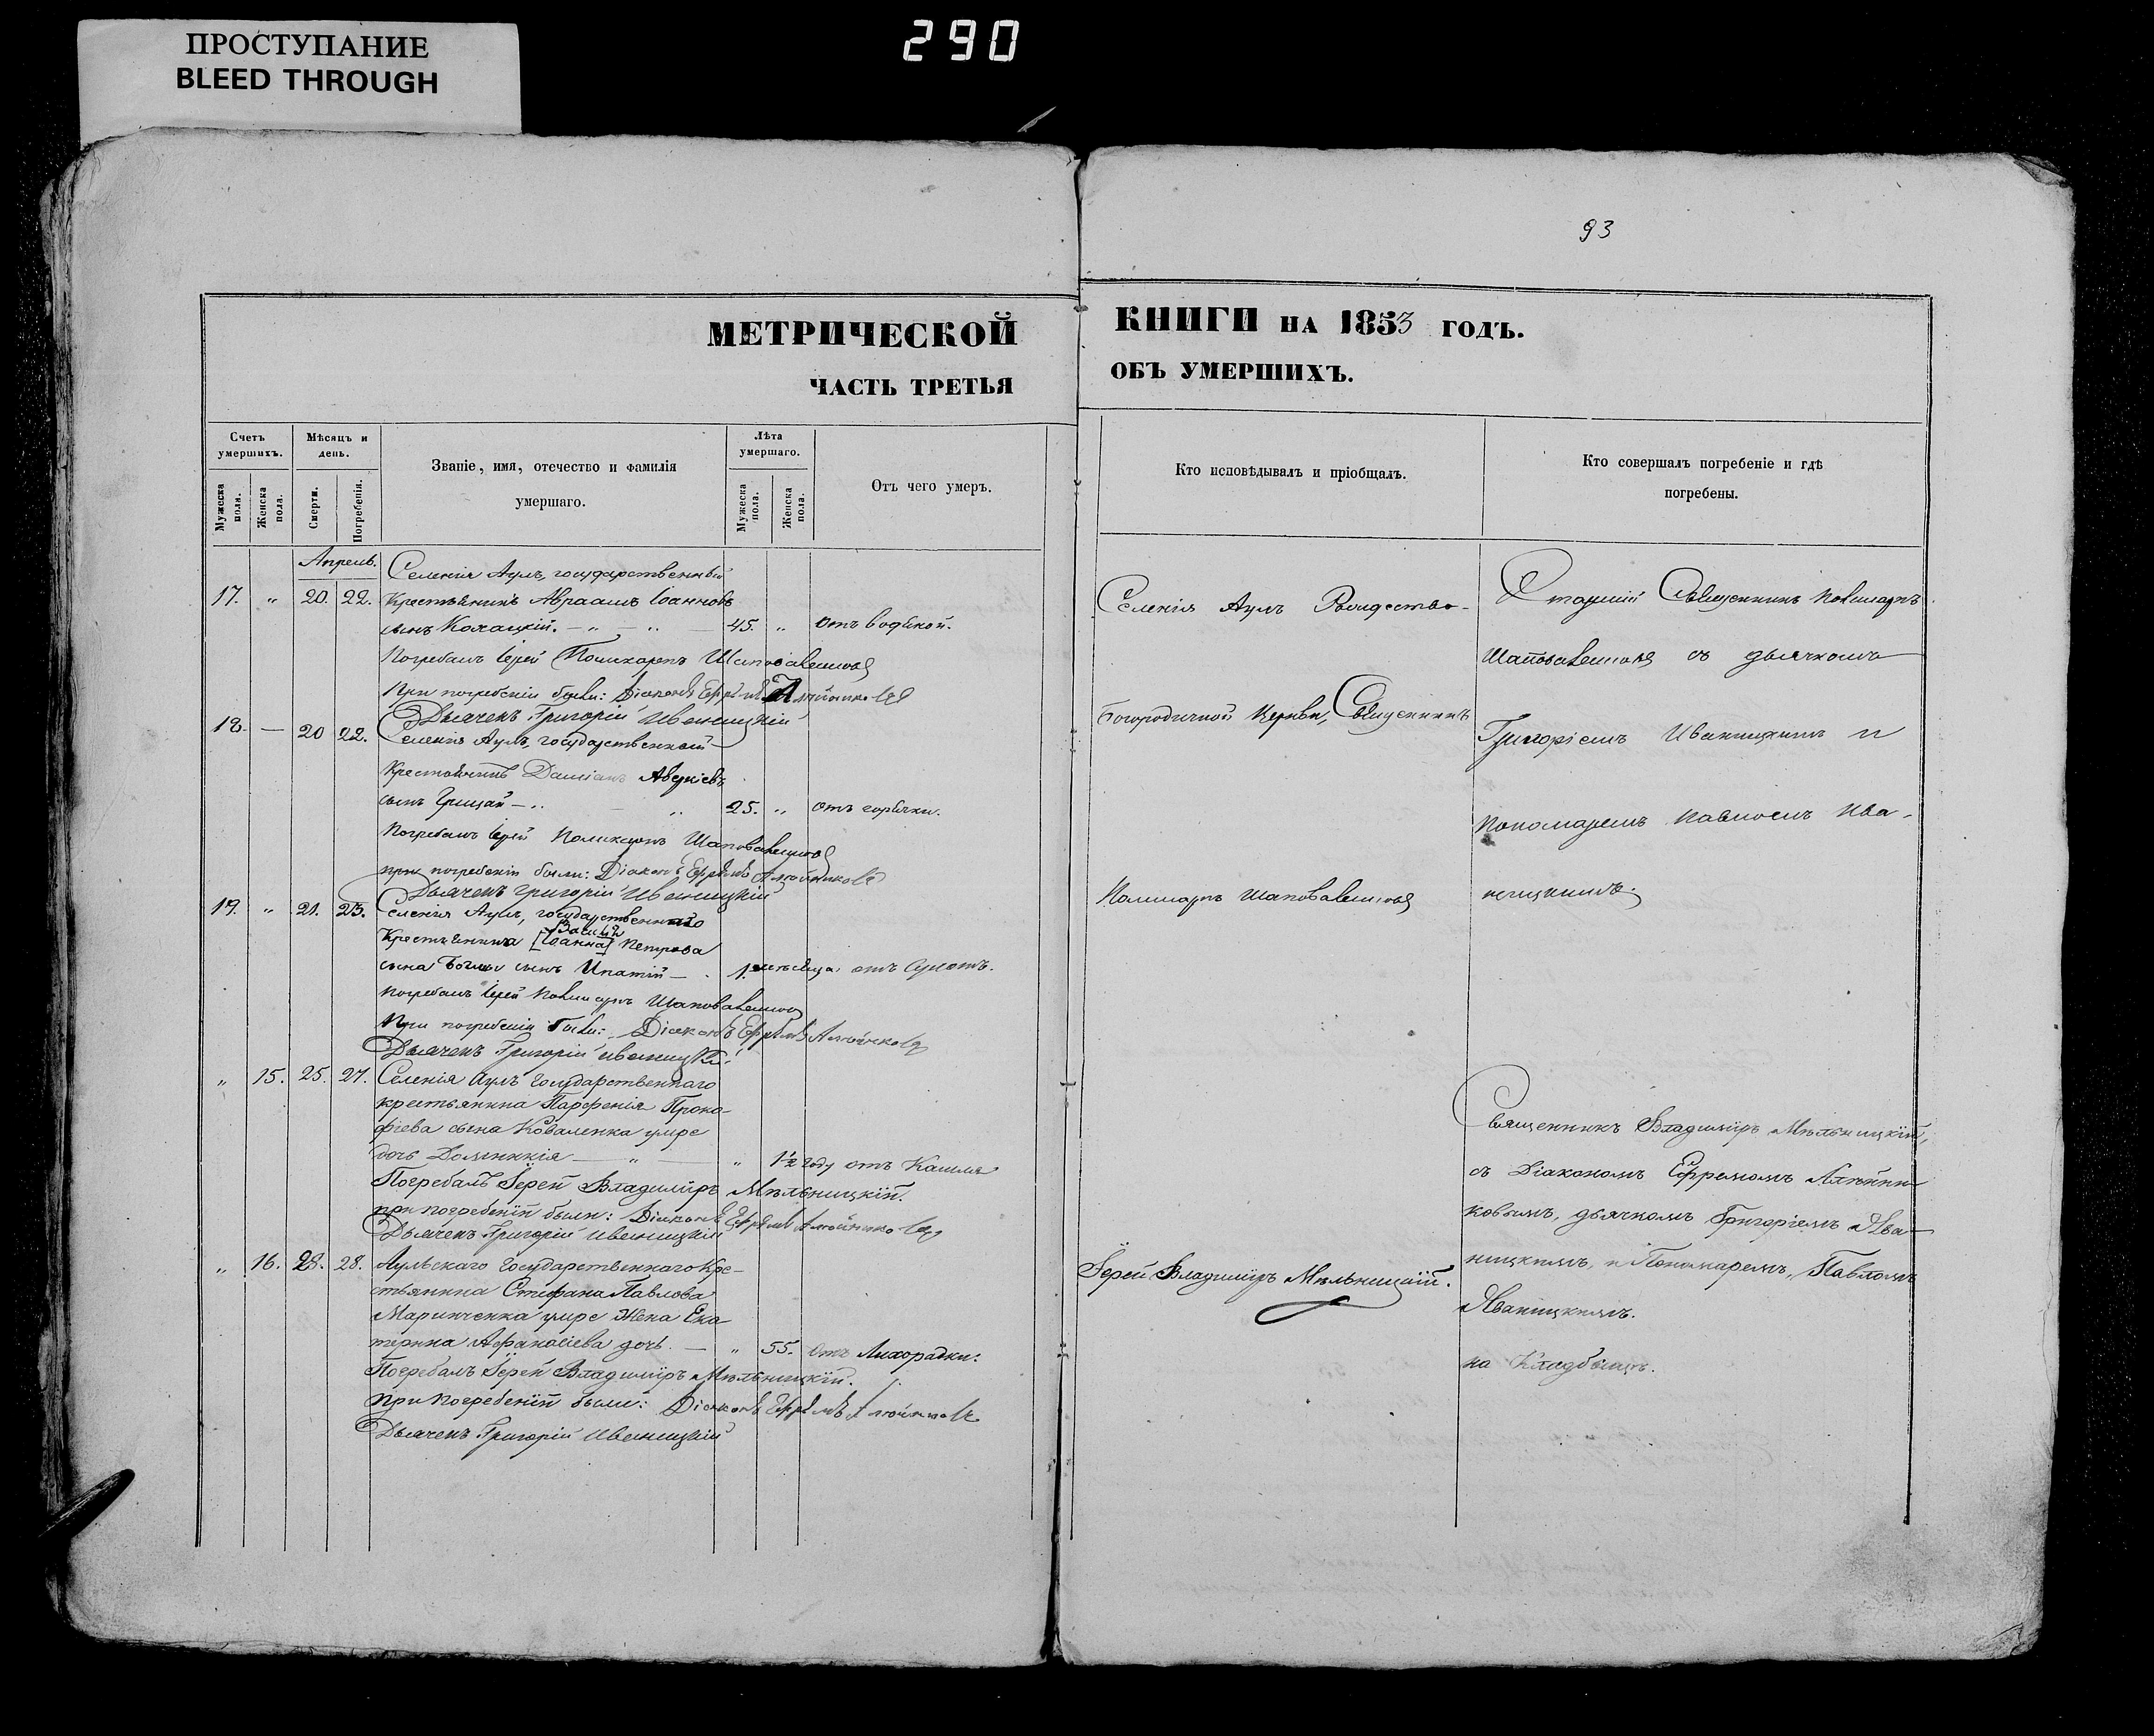 ПРОСТУПАНИЕ
BLEED THROUGH
290
93
МЕТРИЧЕСКОЙ
ЧАСТЬ ТРЕТЬЯ
КНИГИ НА 1853 ГОДЪ.
ОБЪ УМЕРШИХЪ.
Счетъ умершихъ.
Мужеска пола.
Женска пола.
Мѣсяцъ и день.
Смерти.
Погребенія.
Званіе, имя, отечество и фамилія
умершаго.
Лѣта умершаго.
Мужеска пола.
Женска пола.
Отъ чего умеръ.
Кто исповѣдывалъ и пріобщалъ.
Кто совершалъ погребеніе и гдѣ
погребены.
Апрель.
Селенія Аулъ, государственный
17. „ 20. 22. Крестьянинъ Авраамъ Іоанновъ
сынъ 45. „ отъ водяной.
Погребалъ Іерей Поликарпъ Шаповаленковъ
При погребеніи были: Діаконъ Ефремъ
Дьячекъ Григорій Иваницкій
18. — 20 22. Селенія Аулъ, государственный
Крестьянинъ Даміанъ
сынъ Грицай 25. „ отъ горячки.
Погребалъ Іерей Поликарпъ Шаповаленковъ
при погребеніи были: Діаконъ Ефремъ
Дьячекъ Григорій Иваницкій
19. „ 21. 23. Селенія Аулъ, государственнаго
Крестьянина [Іоанна] Петрова
сына сынъ Ипатій — 1. мѣсяца. отъ сухотъ.
Погребалъ Іерей Поликарпъ Шаповаленковъ
При погребеніи были: Діаконъ Ефремъ
Дьячекъ Григорій Иваницкій
„ 15. 25. 27. Селенія Аулъ Государственнаго
крестьянина Парфенія Проко-
фіева сына Коваленка умре
дочь Домникія — „ — „ 1½ году отъ Кашля
Погребалъ Іерей Владиміръ Мѣльницкій.
при погребеніи были: Діаконъ Ефремъ
Дьячекъ Григорій Иваницкій
„ 16. 28. 28. Аульскаго Государственнаго Кре-
стьянина Стефана Павлова
Маринченка умре Жена Ека
терина Афанасіева дочь. — „ 55. отъ Лихорадки.
Погребалъ Іерей Владиміръ Мѣльницкій.
При погребеніи были: Діаконъ Ефремъ
Дьячекъ Григорій Иваницкій
Селенія Аулъ Рождество-
Богородичной Церкви, Священникъ
Поликарпъ Шаповаленковъ
Іерей Владиміръ Мѣльницкій.
Старшій Священникъ Поликарпъ
Шаповаленковъ съ дьячкомъ
Григоріемъ Иваницкимъ и
Пономаремъ Павломъ Ива-
ницкимъ.
Священникъ Владиміръ Мѣльницкій,
съ Діакономъ Ефремомъ
ковымъ, дьячкомъ Григоріемъ Ива-
ницкимъ, и Пономаремъ, Павломъ
Иваницкимъ.
на Кладбищѣ.